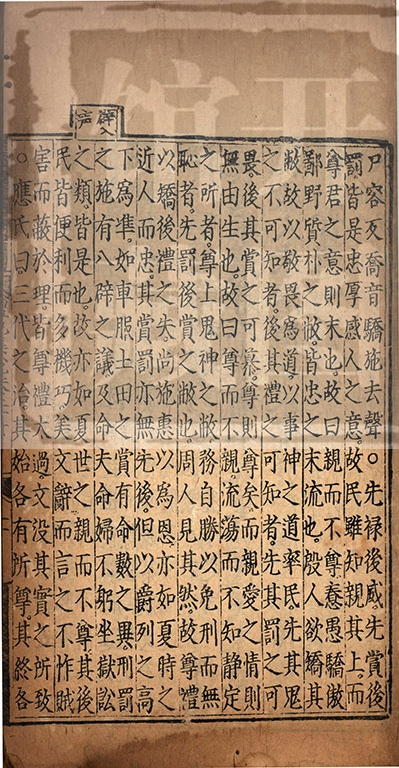 口容反喬音驕施去聲○先祿後威先賞後
罰皆是忠厚感人之意故民雖知親其上而
尊君之意則未也故曰親而不尊惷愚驕傲
鄙野質朴之敝皆忠之末流也殷人欲矯其
敝故以敬畏爲道以事神之道率民先其鬼
之不可知者後其禮之可知者先其罰之可
畏後其賞之可慕尊則尊矣而親愛之情則
無由生也故曰尊而不親流蕩而不知静定
之所者尊上鬼神之敝務自勝以免刑而無
恥者先罰後賞之敝也周人見其然故尊禮
以矯後禮之失尚施惠以爲恩亦如夏時之
近人而忠其賞罰亦無先後但以爵列之高
下爲準如車服土田之賞有命數之異刑罰
之施有八辟之議及命夫命婦不躬坐獄訟
之類皆是也故亦如夏世之親而不尊其後
民皆便利而多機巧美文辭而言之不怍賊
害而蔽於理皆尊禮太過文没其實之所致
○應氏曰三代之治其始各有所尊其終各
辟入
声